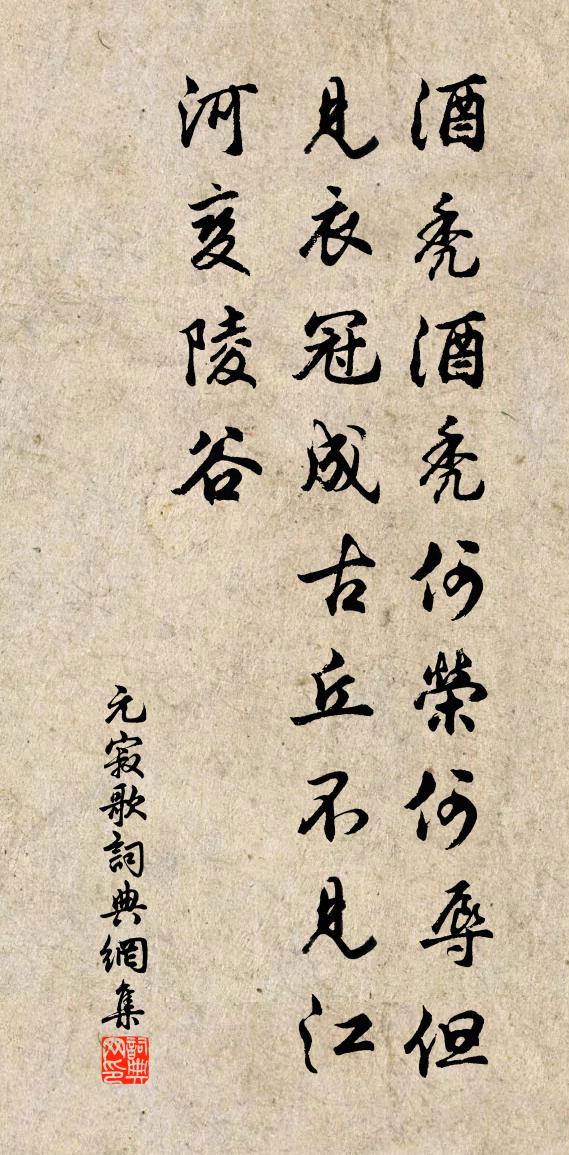 酒禿酒禿何榮何辱但
見衣冠成古丘不見江
河变陵谷
元寂歌詞典網集
詞典网印